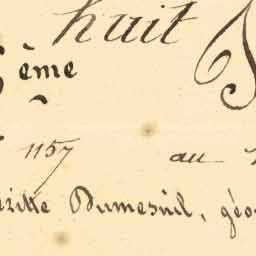 huit
ème
1157 au
Dumesnil, géo